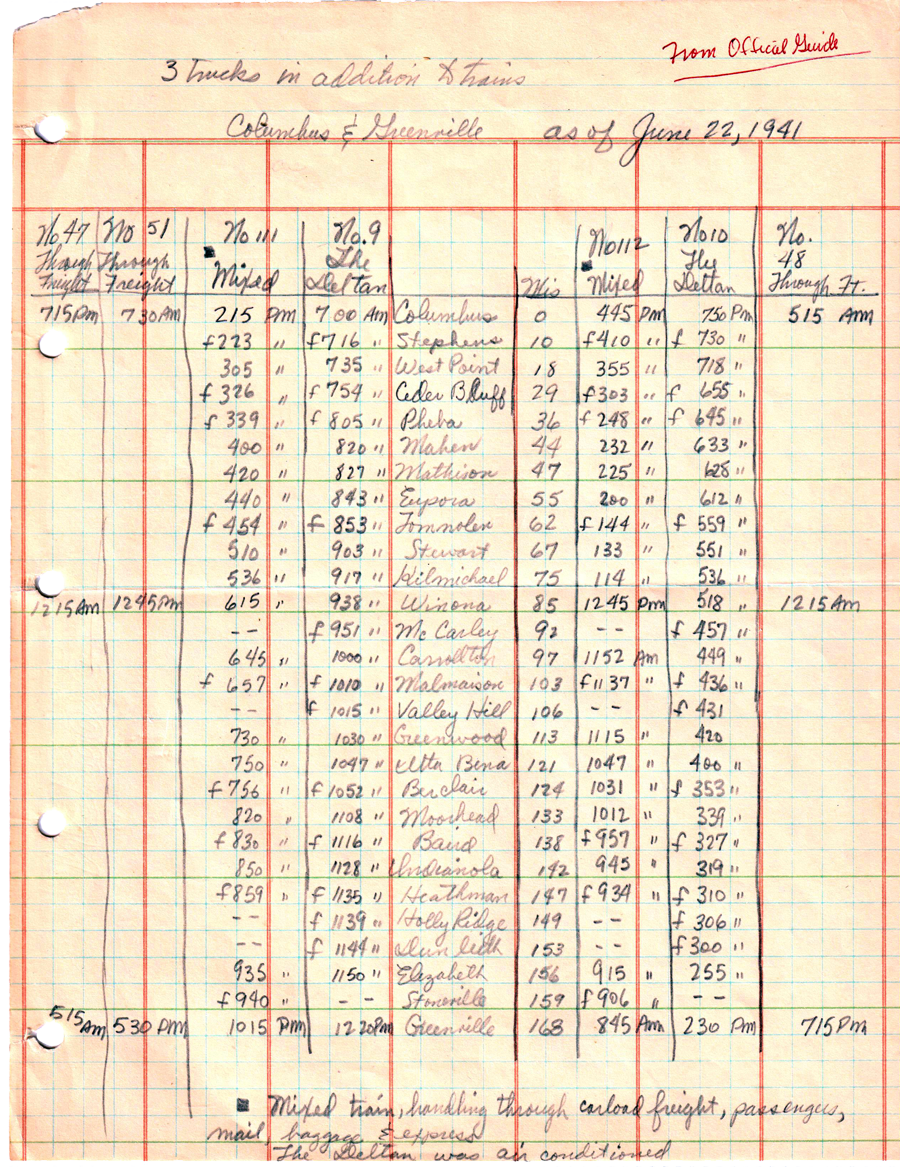 From Official Guide
3 trucks in addition to trains
Columbus & Greenville as of June 22, 1941
No 47 Through Freight No 51 Through Freight No 111 ■ Mixed No. 9 The Deltan Mis No 112 ■ Mixed No 10 The Deltan No. 48 Through Ft.
715 Pm 730 Am 215 Pm 700 Am Columbus 0 445 Pm 750 Pm 515 Am
f 223 " f 716 " Stephens 10 f 410 " f 730 "
305 " 735 " West Point 18 355 " 718 "
f 326 " f 754 " Ceder Bluff 29 f 303 " f 655 "
f 339 " f 805 " Pheba 36 f 248 " f 645 "
400 " 820 " Mahen 44 232 " 633 "
420 " 827 " Mathison 47 225 " 628 "
440 " 843 " Eupora 55 200 " 612 "
f 454 " f 853 " Tomnolen 62 f 144 " f 559 "
510 " 903 " Stewart 67 133 " 551 "
536 " 917 " Kilmichael 75 114 " 536 "
1215 Am 1245 Pm 615 " 938 " Winona 85 1245 Pm 518 " 1215 Am
-- f 951 " Mc Carley 92 -- f 457 "
645 " 1000 " Carrollton 97 1152 Am 449 "
f 657 " f 1010 " Malmaison 103 f 1137 " f 436 "
-- f 1015 " Valley Hill 106 -- f 431
730 " 1030 " Greenwood 113 1115 " 420
750 " 1047 " Itta Bena 121 1047 " 400 "
f 756 " f 1052 " Berclair 124 1031 " f 353 "
820 " 1108 " Moorhead 133 1012 " 339 "
f 830 " f 1116 " Baird 138 f 957 " f 327 "
850 " 1128 " Indianola 142 945 " 319 "
f 859 " f 1135 " Heathman 147 f 934 " f 310 "
-- f 1139 " Holly Ridge 149 -- f 306 "
-- f 1144 " Dunleith 153 -- f 300 "
935 " 1150 " Elizabeth 156 915 " 255 "
f 940 " -- Stoneville 159 f 906 " --
515 Am 530 Pm 1015 Pm 1220 Pm Greenville 168 845 Am 230 Pm 715 Pm
■ Mixed train, handling through carload freight, passengers,
mail, baggage & express
The Deltan was air conditioned